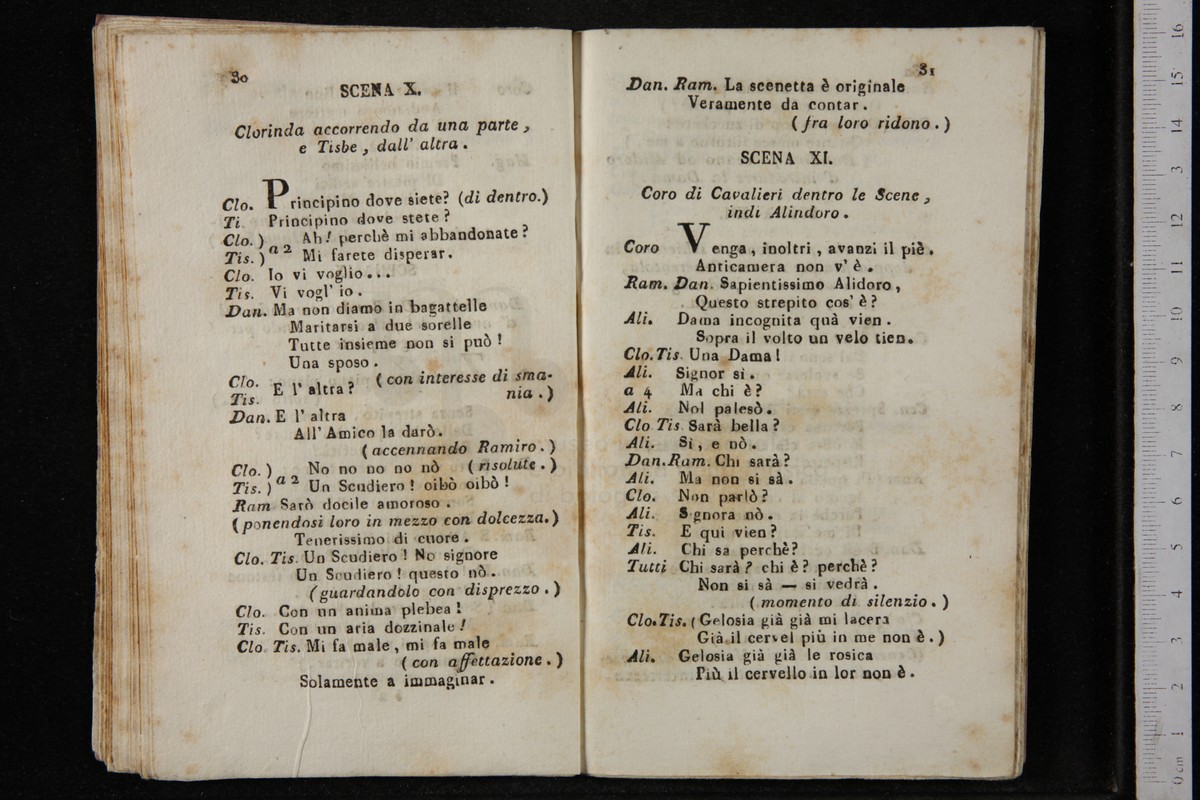 30
SCENA X.
Clorinda accorrendo da una parte,
e Tisbe, dall' altra.
Clo. Principino dove siete? (di dentro.)
Ti Principino dove stete?
Clo.) a 2 Ah! perchè mi abbandonate?
Tis.) Mi farete disperar.
Clo. Io vi voglio...
Tis. Vi vogl' io.
Dan. Ma non diamo in bagattelle
Maritarsi a due sorelle
Tutte insieme non si può!
Una sposo.
Clo. Tis. E l' altra? (con interesse di sma-
nia.)
Dan. E l' altra
All' Amico la darò.
(accennando Ramiro.)
Clo.) a 2 No no no no nò (risolute.)
Tis.) Un Scudiero! oibò oibò!
Ram Sarò docile amoroso.
(ponendosi loro in mezzo con dolcezza.)
Tenerissimo di cuore.
Clo. Tis. Un Scudiero! No signore
Un Scudiero! questo nò.
(guardandolo con disprezzo.)
Clo. Con un anima plebea!
Tis. Con un aria dozzinale!
Clo. Tis. Mi fa male, mi fa male
(con affettazione.)
Solamente a immaginar.
31
Dan. Ram. La scenetta è originale
Veramente da contar.
(fra loro ridono.)
SCENA XI.
Coro di Cavalieri dentro le Scene,
indi Alindoro.
Coro Venga, inoltri, avanzi il piè.
Anticamera non v' è.
Ram. Dan. Sapientissimo Alidoro,
Questo strepito cos' è?
Ali. Dama incognita quà vien.
Sopra il volto un velo tien.
Clo. Tis. Una Dama!
Ali. Signor si.
a 4 Ma chi è?
Ali. Nol palesò.
Clo Tis. Sarà bella?
Ali. Si, e nò.
Dan. Ram. Chi sarà?
Ali. Ma non si sà.
Clo. Non parlò?
Ali. Signora nò.
Tis. E qui vien?
Ali. Chi sa perchè?
Tutti Chi sarà? chi è? perchè?
Non si sà — si vedrà.
(momento di silenzio.)
Clo. Tis. (Gelosia già già mi lacera
Già il cervel più in me non è.)
Ali. Gelosia già già le rosica
Più il cervello in lor non è.
0 cm 1 2 3 4 5 6 7 8 9 10 11 12 13 14 15 16